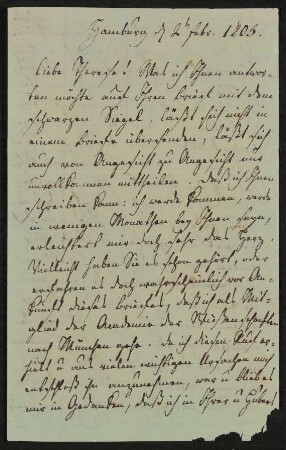 Hamburg d 2t Febr. 1805.
Liebe Therese! Was ich Ihnen antwor-
ten möchte auf Ihren Brief mit dem
schwarzen Siegel, läßt sich nicht in
einem Briefe übersenden, läßt sich
auch von Angesicht zu Angesicht nur
unvollkommen mittheilen. Daß ich Ihnen
schreiben kann: ich werde kommen, werde
in wenigen Monathen bey Ihnen seyn,
erleichtert mir doch sehr das Herz.
Vielleicht haben Sie es schon gehört, oder
erfahren es doch wahrscheinlich vor An-
kunft dieses Briefes, daß ich als Mit-
glied der Academie der Wissenschaften
nach München gehe. Da ich diesen Ruf er-
hielt u aus vielen wichtigen Ursachen mich
entschloß ihn anzunehmen, war u blieb es
mir in Gedanken, daß ich in Ihrer u Hubers